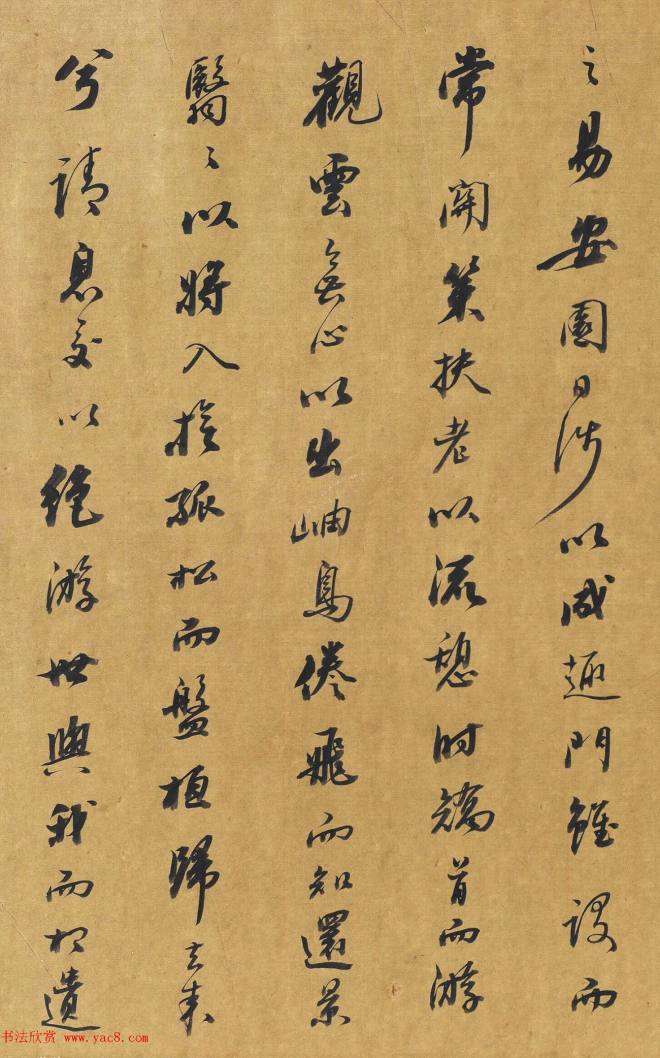 之易安園日涉以成趣門雖設而
常關策扶老以流憩時矯首而游
觀雲無心以出岫鳥倦飛而知還景
翳〻以將入撫孤松而盤桓歸去來
兮請息交以絕游世與我而相遺
书法欣赏 www.yac8.com